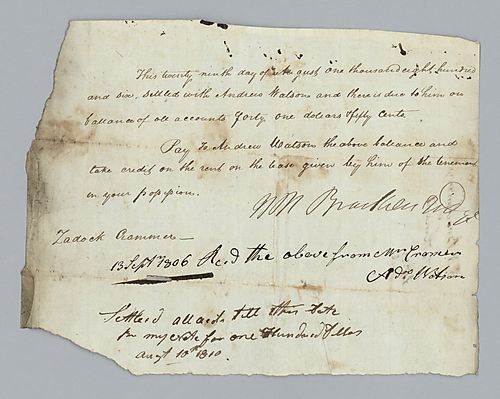 This twenty ninth day of August one thousand eight hundred
and six, settled with Andrew Watson and there is due to him on
ballance of all accounts forty one dollars & fifty cents
Pay to Andrew Watson the above ballance and
take credit on the rent on the lease given by him of the tenement
in your possession.
H H Brackenridge
Zadock Crammer
13 Sept 1806 Recd the above from Mr Cramer
Andw Watson
Settled all accts till this date
my note for one Hundred Dollars
augt 10th 1810.